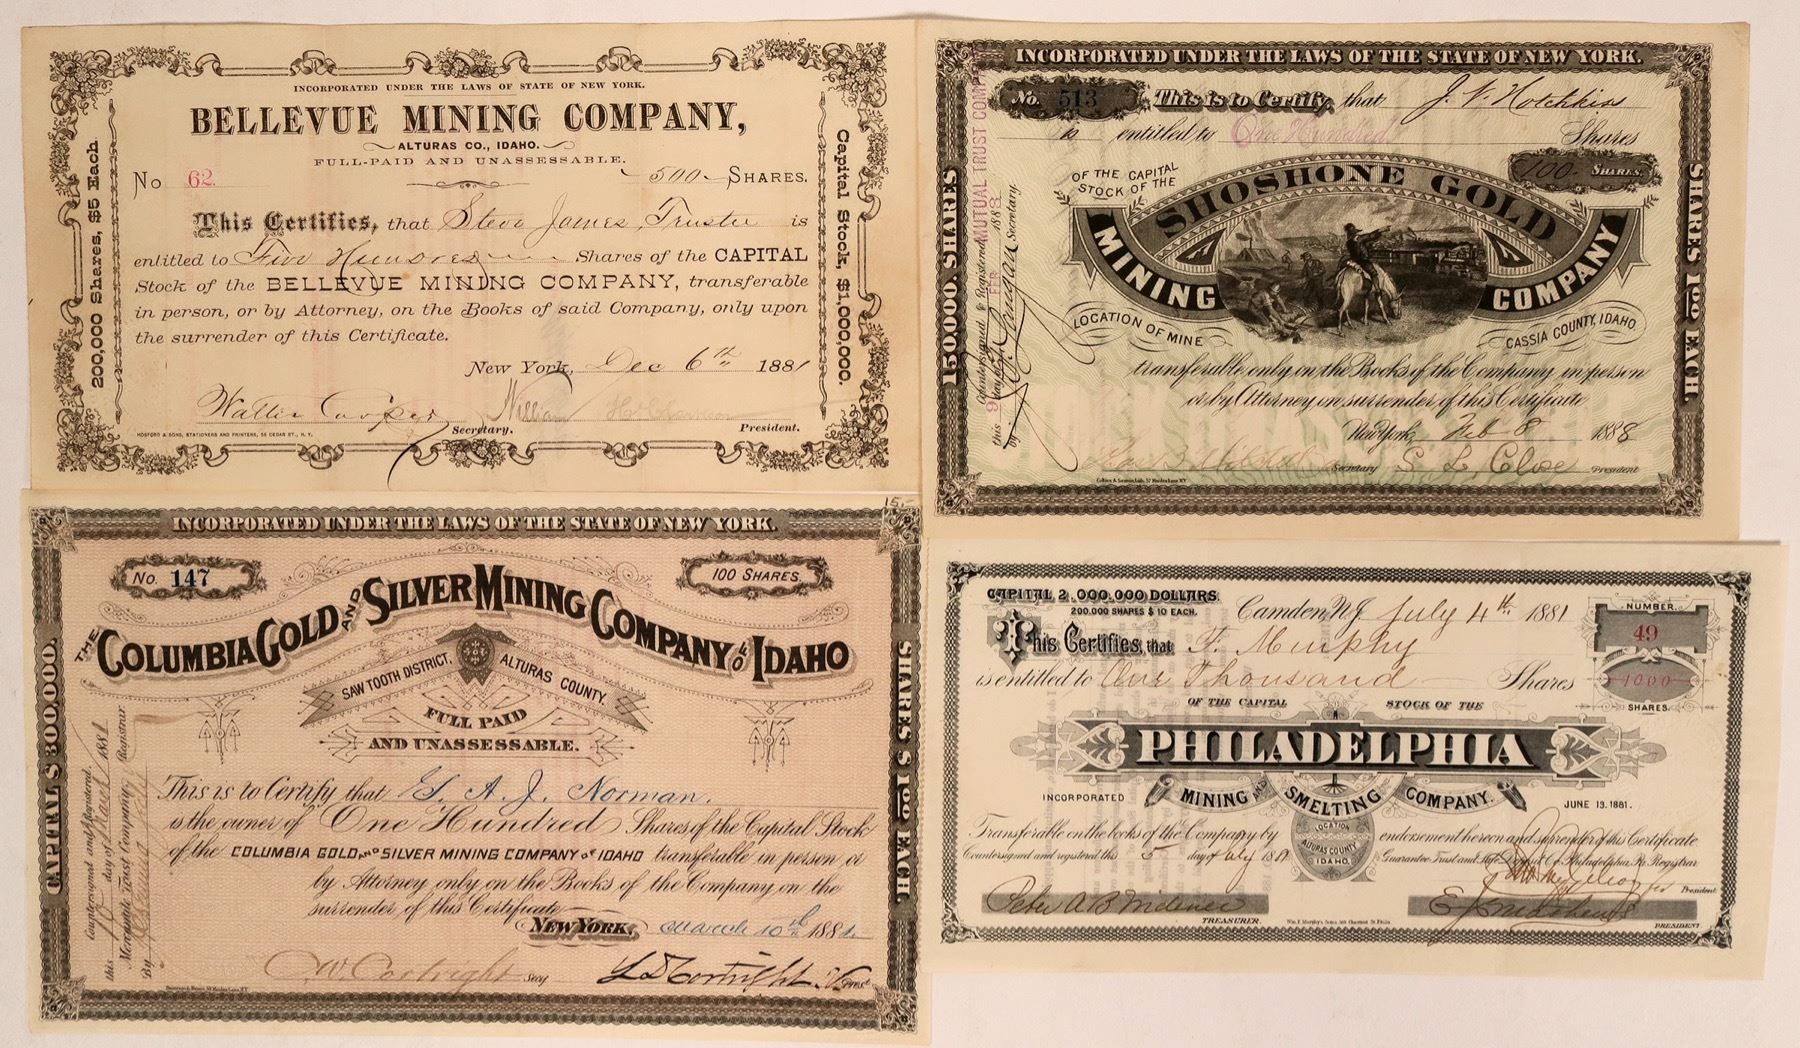 INCORPORATED UNDER THE LAWS OF STATE OF NEW YORK.
BELLEVUE MINING COMPANY,
ALTURAS CO., IDAHO.
FULL-PAID AND UNASSESSABLE.
No 62. 500 SHARES.
This Certifies, that Steve James, Trustee is
enlitled to Five Hundred Shares of the CAPITAL
Stock of the BELLEVUE MINING COMPANY, transferable
in person, or by Attorney, on the Books of said Company, only upon
the surrender of this Certificate.
New York, Dec 6th 1881
Walter Cooper Secretary. William President.
HOSFORD & SONS, STATIONERS AND PRINTERS, 55 CEDAR ST., N. Y.
200,000 Shares, $5 Each
Capital Stock, $1,000,000.
INCORPORATED UNDER THE LAWS OF THE STATE OF NEW YORK.
No. 513 This is to Certify, that J. V. Hotchkiss
is entitled to One Hundred Shares
OF THE CAPITAL
STOCK OF THE
100 SHARES.
SHOSHONE GOLD
MINING COMPANY
LOCATION OF MINE
CASSIA COUNTY, IDAHO.
transferable only on the Books of the Company in person
or by Attorney on surrender of this Certificate
New York, Feb 8 1888
Secretary S. L. Close President
150,000 SHARES
SHARES $1.00 EACH
Countersigned & Registered
MUTUAL TRUST COMP
this 9 day of FEB 1888
by Secretary.
15.-
INCORPORATED UNDER THE LAWS OF THE STATE OF NEW YORK.
No. 147
100 SHARES
THE COLUMBIA GOLD AND SILVER MINING COMPANY OF IDAHO
SAW TOOTH DISTRICT, ALTURAS COUNTY.
FULL PAID
AND UNASSESSABLE.
This is to Certify that G. A. J. Norman.
is the owner of One Hundred Shares of the Capital Stock
of the COLUMBIA GOLD AND SILVER MINING COMPANY OF IDAHO transferable in person or
by Attorney only on the Books of the Company on the
surrender of this Certificate
NEW YORK, March 10th 1881
C W Cortright Secy L D Cortright V. Prest
CAPITAL $300,000.
SHARES $1.00 EACH.
Countersigned and Registered,
this 10 day of March 1881
Mercantile Trust Company, Registrar.
By
CAPITAL 2,000,000 DOLLARS.
200.000 SHARES $10 EACH.
Camden, N.J. July 4th 1881
NUMBER
49
This Certifies, that F. Murphy
is entitled to One Thousand Shares
1000
SHARES.
OF THE CAPITAL STOCK OF THE
PHILADELPHIA
MINING AND SMELTING COMPANY.
INCORPORATED JUNE 13. 1881.
LOCATION
ALTURAS COUNTY
IDAHO.
Transferable on the books of the Company by endorsement hereon and surrender of this Certificate
Countersigned and registered this 5 day of July 1881 Guarantee Trust and Safe Deposit Co. of Philadelphia Pa. Registrar
President
Peter A B Widener
TREASURER.
Wm. F. Murphy's Sons
PRESIDENT.